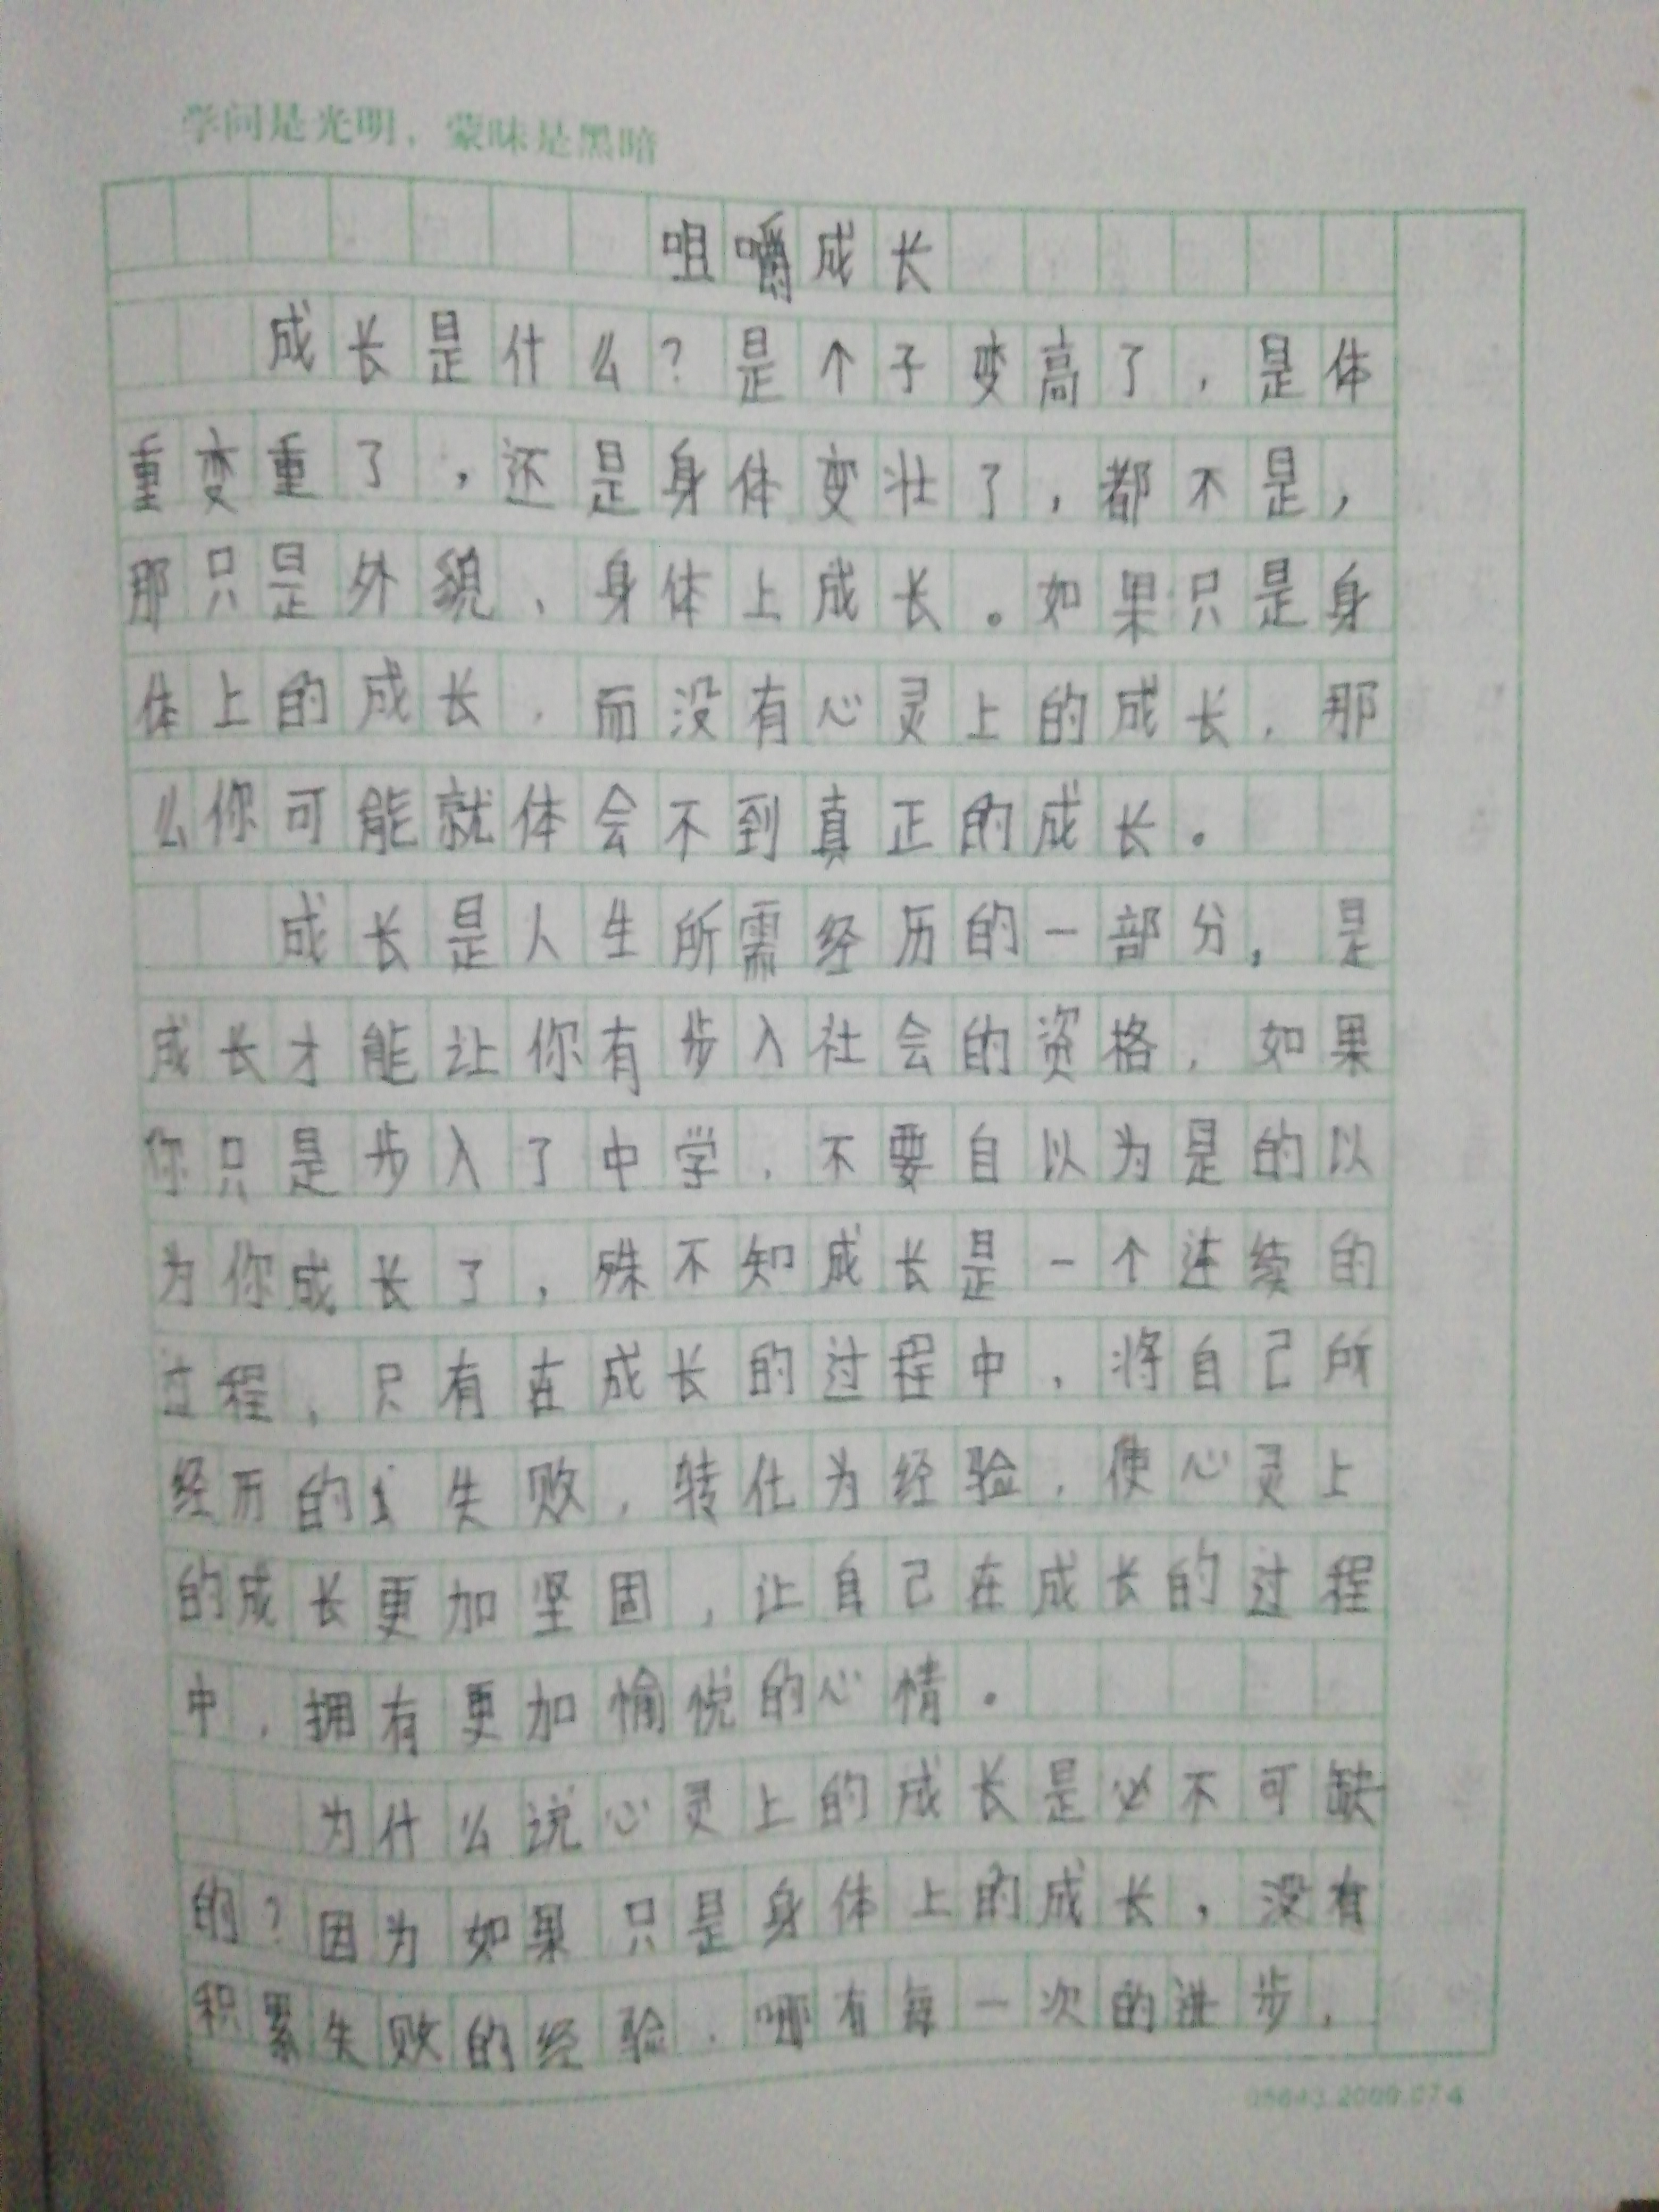 学问是光明，蒙昧是黑暗
咀嚼成长
成长是什么？是个子变高了，是体
重变重了，还是身体变壮了，都不是，
那只是外貌、身体上成长。如果只是身
体上的成长，而没有心灵上的成长，那
么你可能就体会不到真正的成长。
成长是人生所需经历的一部分，是
成长才能让你有步入社会的资格，如果
你只是步入了中学，不要自以为是的以
为你成长了，殊不知成长是一个连续的
过程，只有在成长的过程中，将自己所
经历的失败，转化为经验，使心灵上
的成长更加坚固，让自己在成长的过程
中，拥有更加愉悦的心情。
为什么说心灵上的成长是必不可缺
的？因为如果只是身体上的成长，没有
积累失败的经验，哪有每一次的进步，